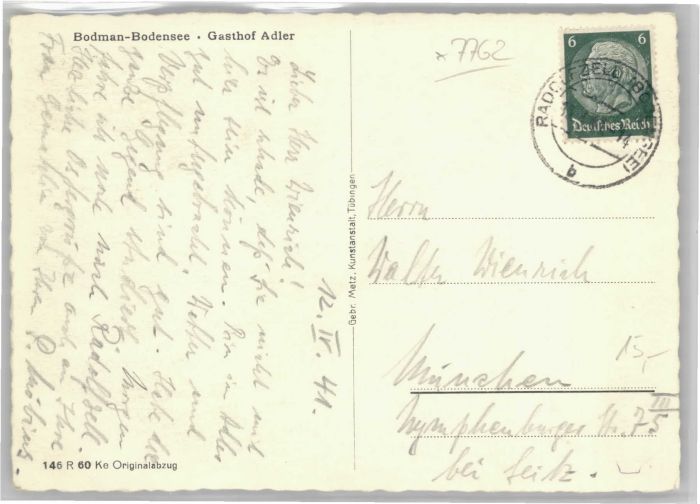 Bodman-Bodensee • Gasthof Adler
x 7762
6 6
Deutsches Reich
RADOLFZELL (BODENSEE)
b
12. IV. 41.
Liebe Herr Wienrich!
Es ist schade, daß Sie nicht mit
hier sein können. Wir im Adler
gut untergebracht. Wetter und
Verpflegung sind gut. Habe die
ganze Gegend Morgen
fahre ich noch nach Radolfzell.
Herzliche Ostergrüße auch an Ihre
Frau Gemahlin von Ihrem
Gebr. Metz, Kunstanstalt, Tübingen
Herrn
Walter Wienrich
15,-
München
Nymphenburger Str. 75 III
bei Seitz.
146 R 60 Ke Originalabzug